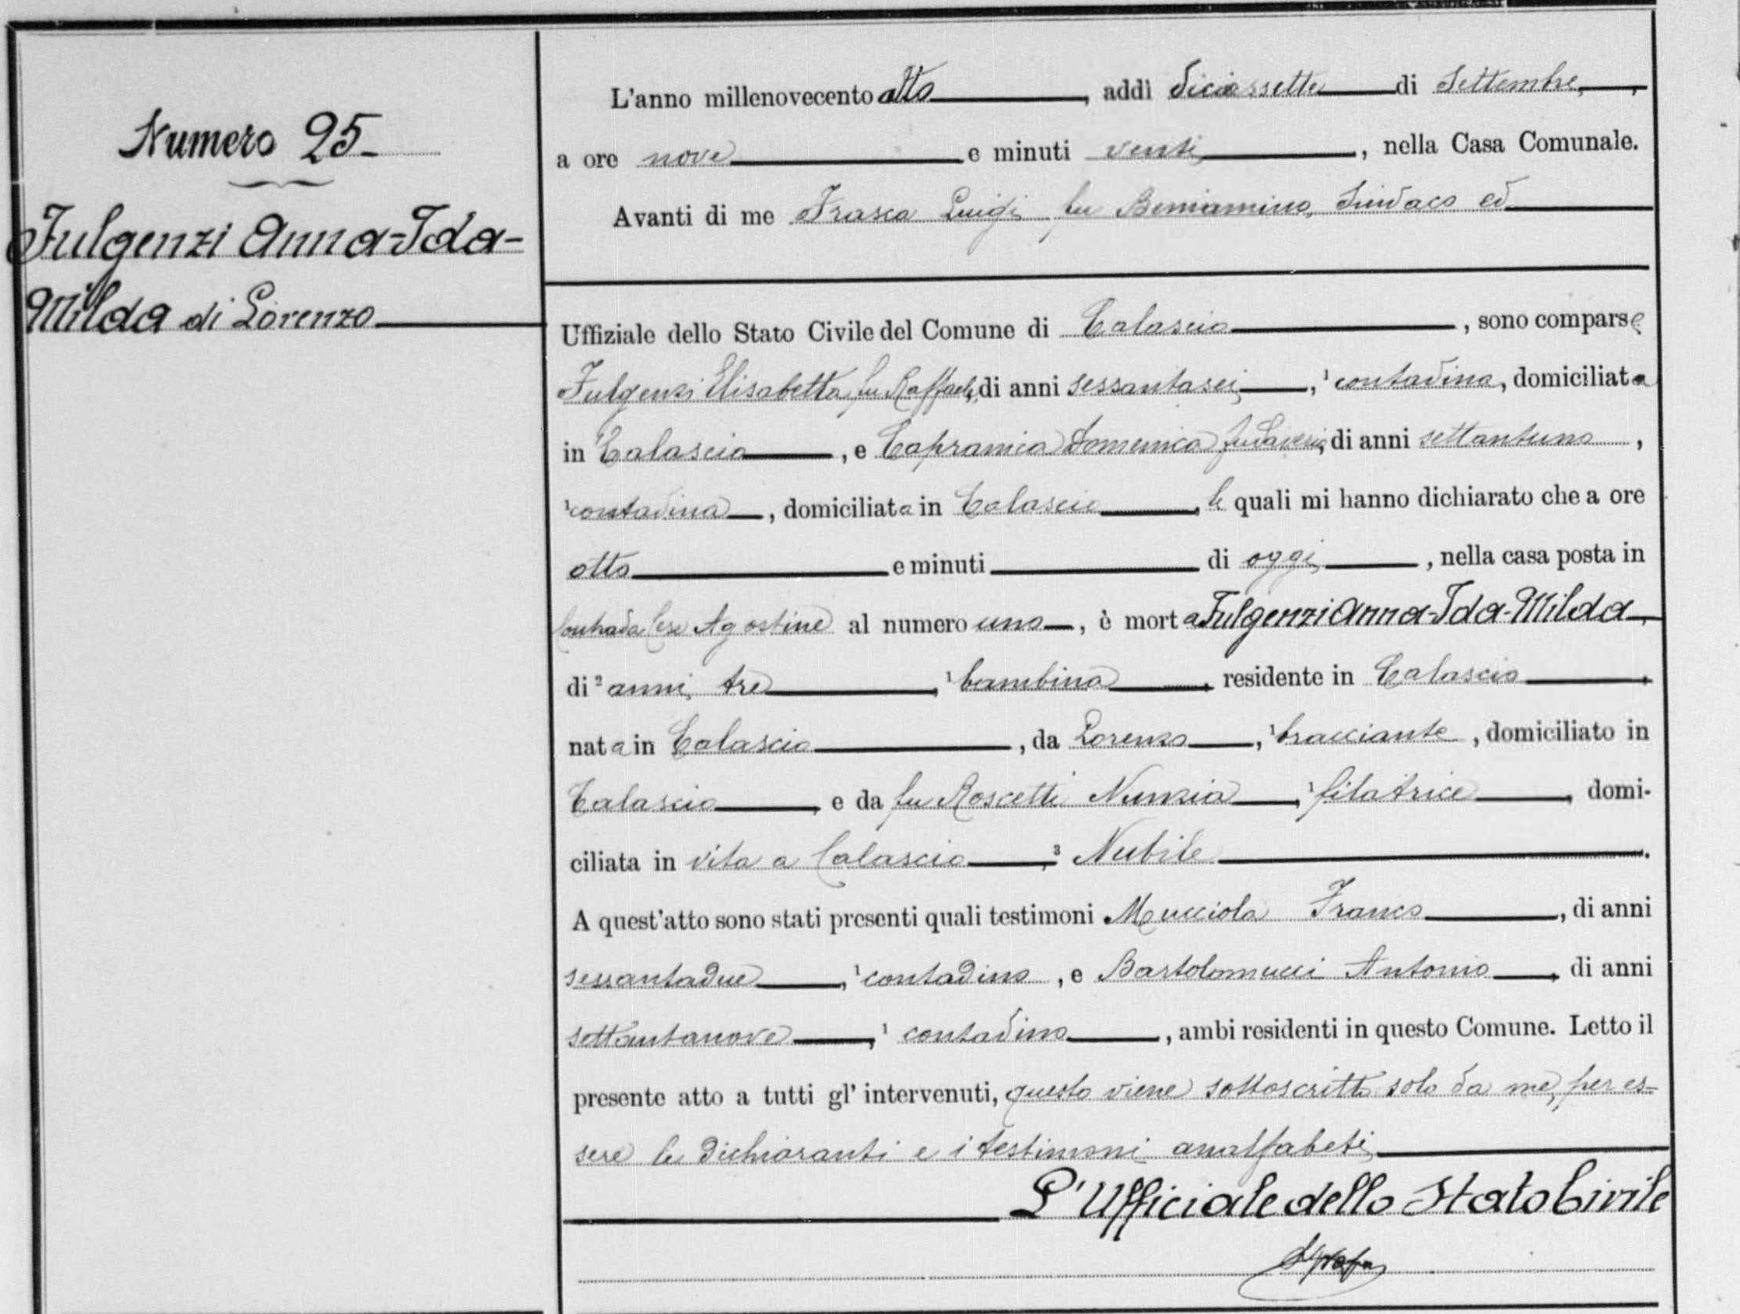 Numero 25
Fulgenzi Anna-Ida-
Milda di Lorenzo
L'anno millenovecento otto, addì diciassette di Settembre,
a ore nove e minuti venti, nella Casa Comunale.
Avanti di me Frasca Luigi fu Beniamino, Sindaco ed
Uffiziale dello Stato Civile del Comune di Calascio, sono comparse
Fulgenzi Elisabetta fu Raffaele, di anni sessantasei, ¹ contadina, domiciliata
in Calascio, e Capramia Domenica fu di anni settantuno,
¹ contadina, domiciliata in Calascio, le quali mi hanno dichiarato che a ore
otto e minuti di oggi, nella casa posta in
Contrada Agostine al numero uno, è morta Fulgenzi Anna-Ida-Milda,
di ² anni tre, ¹ bambina, residente in Calascio,
nata in Calascio, da Lorenzo, ¹ bracciante, domiciliato in
Calascio, e da fu Roscetti Nunzia, ¹ filatrice, domi-
ciliata in vita a Calascio, ³ Nubile.
A quest'atto sono stati presenti quali testimoni Mucciola Franco, di anni
sessantadue, ¹ contadino, e Bartolomucci Antonio, di anni
settantanove, ¹ contadino, ambi residenti in questo Comune. Letto il
presente atto a tutti gl' intervenuti, questo viene sottoscritto solo da me, per es-
sere le dichiaranti e i testimoni analfabeti
L'Ufficiale dello Stato Civile